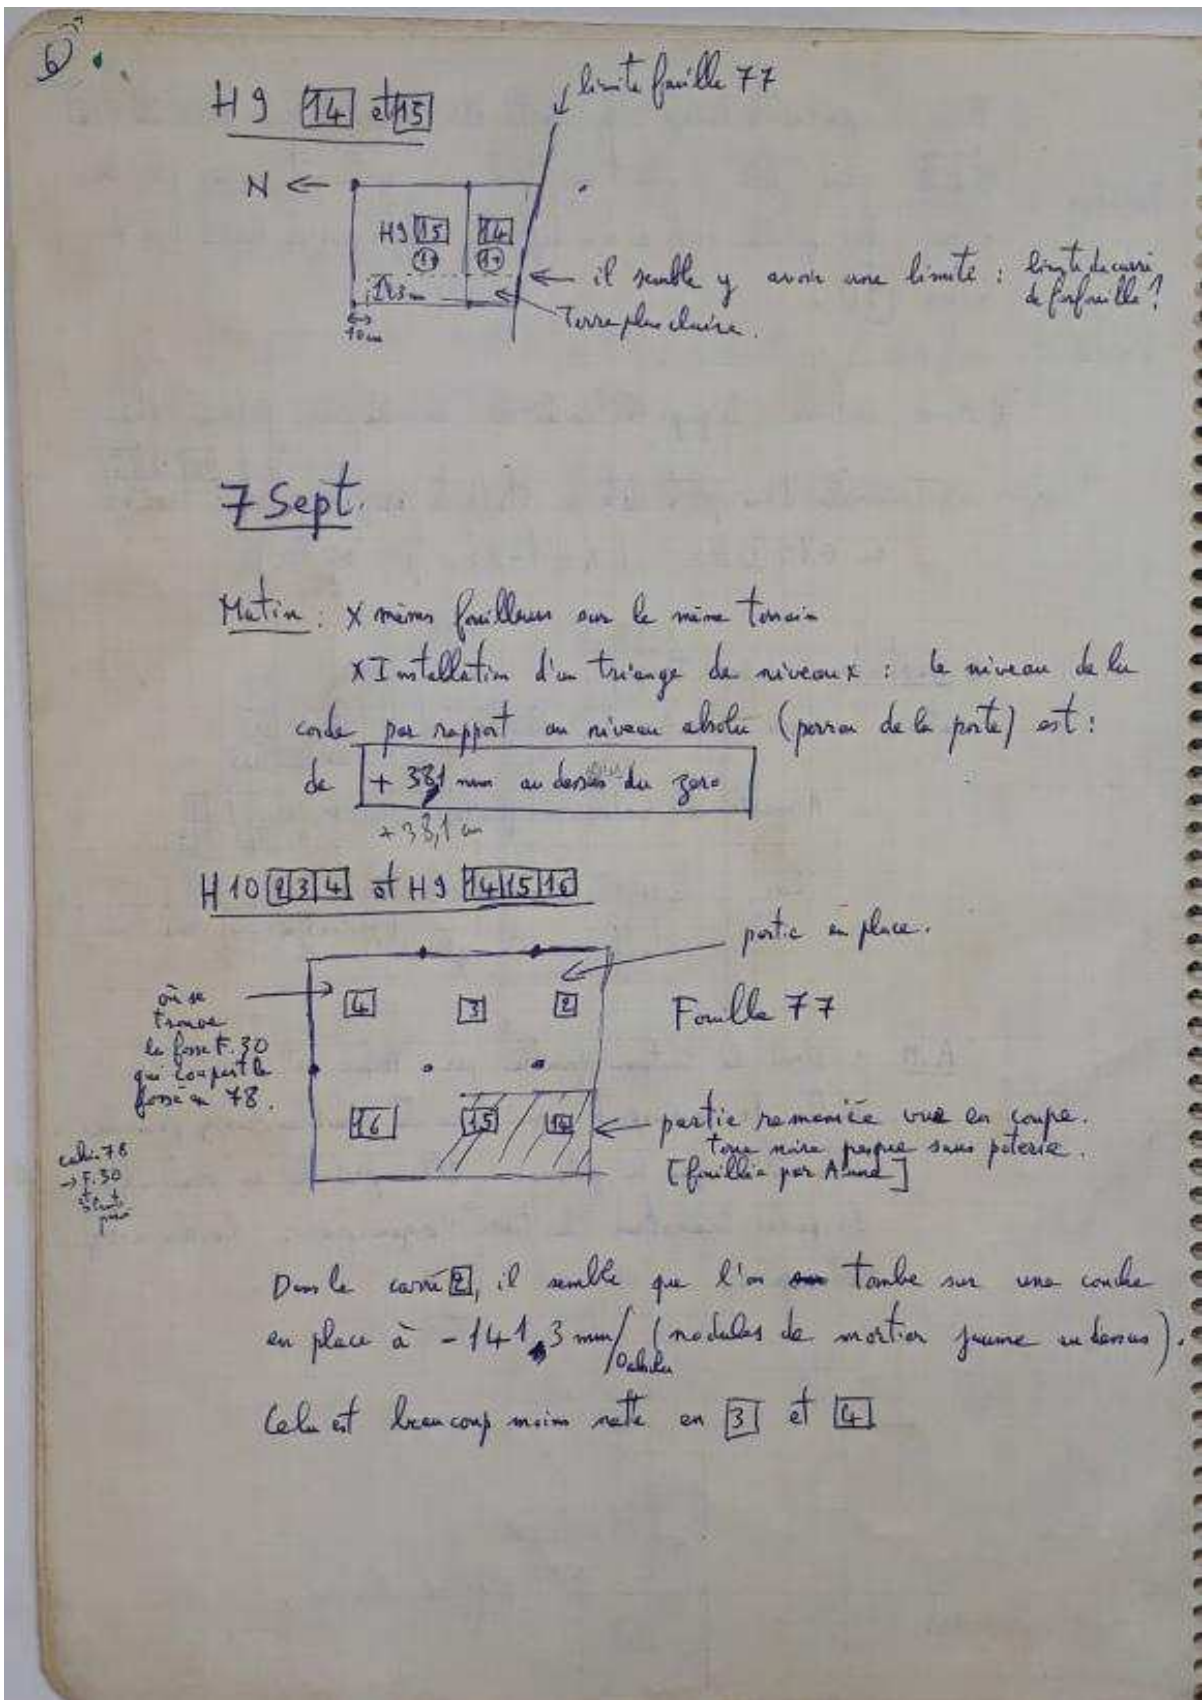 6
H9 14 et 15
limite fouille 77
N ←
H9 15 14
il semble y avoir une limite : limite de
10 cm
Terre plus claire.
7 Sept.
Matin : X mêmes fouilleurs sur le même terrain
X Installation d'un triange de niveaux : le niveau de la
corde par rapport au niveau absolu (perron de la porte) est :
de + 38,1 mm au dessus du zero
+ 38,1 cm
H10 2 3 4 et H9 14 15 16
partie en place.
où se
trouve
la fosse F. 30
qui coupait le
fossé en 78.
4 3 2
Fouille 77
16 15 14
partie remaniée vue en coupe.
Terre noire presque sans poterie.
[fouillée par Anne]
cahier 78
→ F. 30
Dans le carré 2, il semble que l'on tombe sur une couche
en place à - 141,3 mm/0 absolu (nodules de mortier jaune au dessus).
Cela est beaucoup moins nette en 3 et 4